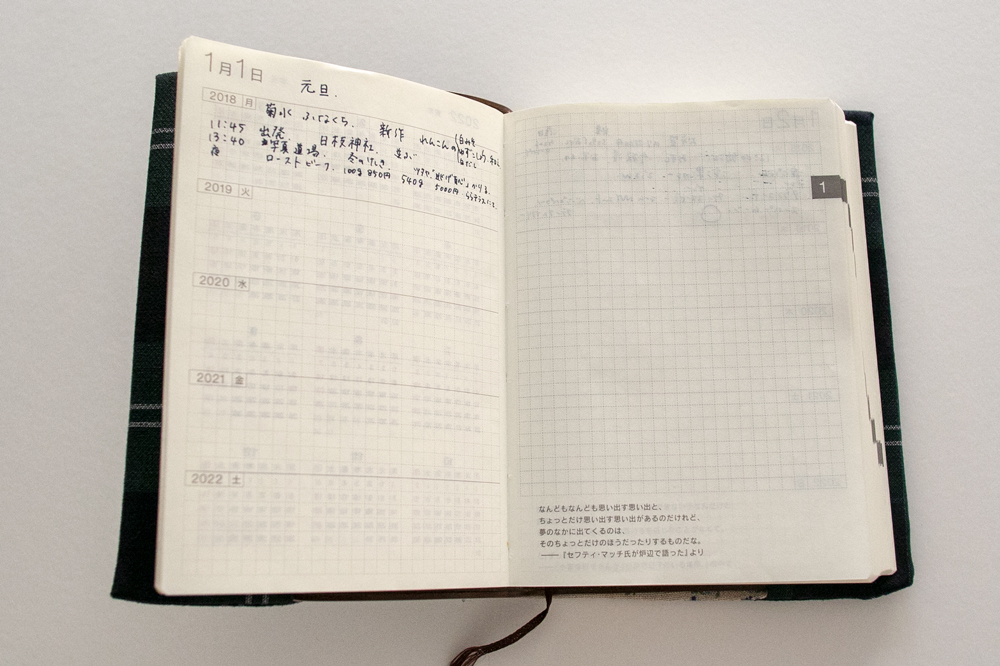 1月1日
元旦.
2018 月
菊水 ふなぐち. 新作 れんこんの
11:45 出発. 日枝神社.
13:40 写真道場. 冬の
夜 ローストビーフ. 100g 850円 540g 5000円
2019 火
2020 水
2021 金
2022 土
1
なんどもなんども思い出す思い出と、
ちょっとだけ思い出す思い出があるのだけれど、
夢のなかに出てくるのは、
そのちょっとだけのほうだったりするものだな。
──『セフティ・マッチ氏が炉辺で語った』より